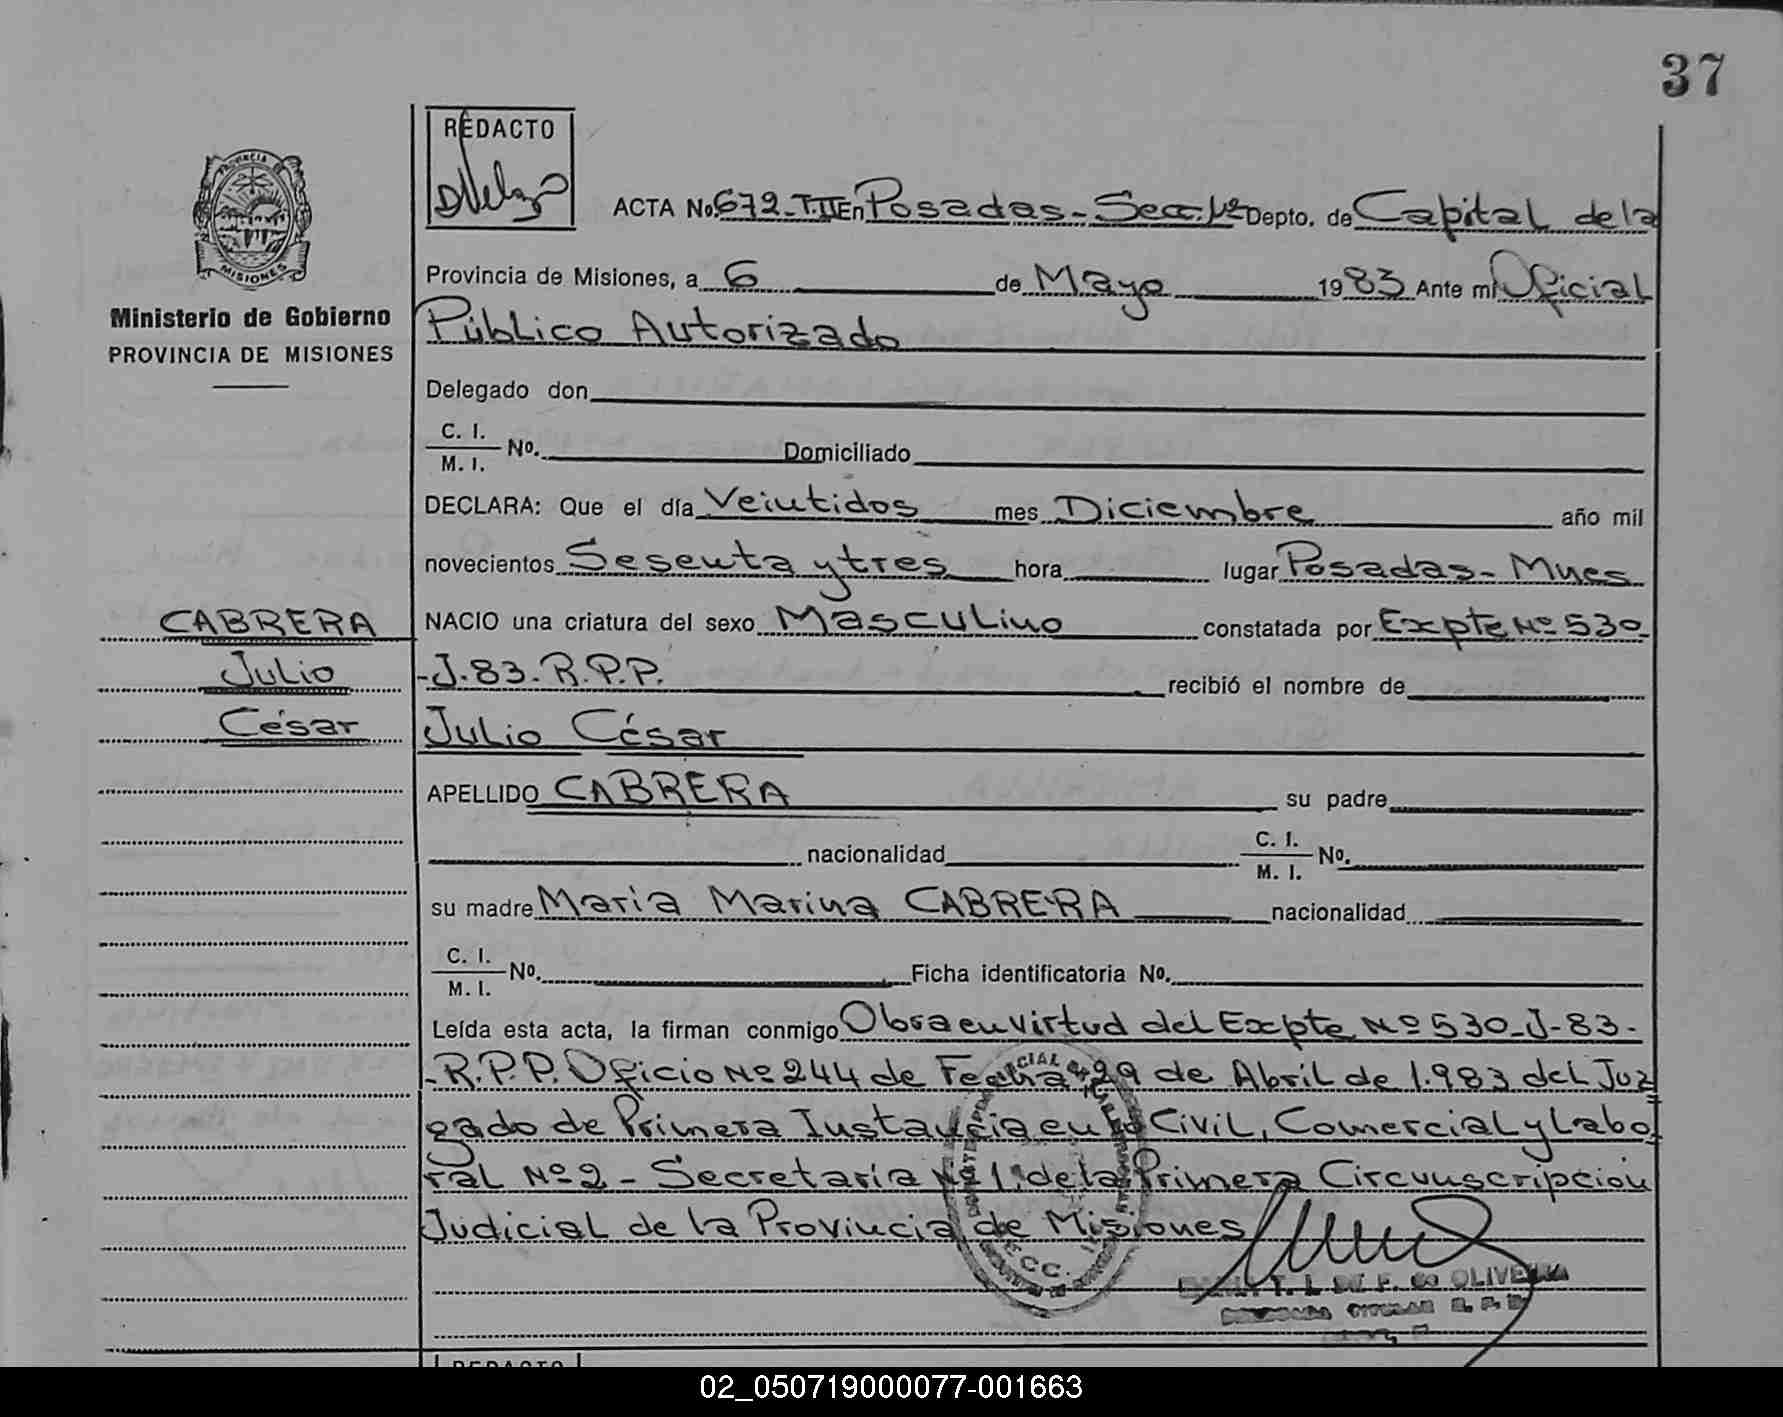 37
REDACTO
ACTA No. 672-T.II En Posadas - Secc. 1ª Depto. de Capital de la
Provincia de Misiones, a 6 de Mayo 1983 Ante mi Oficial
Público Autorizado
Ministerio de Gobierno
PROVINCIA DE MISIONES
Delegado don
C. I.
M. I. No. Domiciliado
DECLARA: Que el día Veintidos mes Diciembre año mil
novecientos Sesenta y tres hora lugar Posadas - Mnes
CABRERA
Julio
César
NACIO una criatura del sexo Masculino constatada por Expte Nº 530
-J-83-R.P.P. recibió el nombre de
Julio César
APELLIDO CABRERA su padre
nacionalidad C. I.
M. I. No.
su madre Maria Marina CABRERA nacionalidad
C. I.
M. I. No. Ficha identificatoria No.
Leída esta acta, la firman conmigo Obra en virtud del Expte Nº 530-J-83-
-R.P.P. Oficio Nº 244 de Fecha 29 de Abril de 1.983 del Juz
gado de Primera Instancia en lo Civil, Comercial y Labo
ral Nº 2 - Secretaría Nº 1 de la Primera Circunscripción
Judicial de la Provincia de Misiones
T. L. DE F. OLIVEIRA
REDACTO
02_050719000077-001663